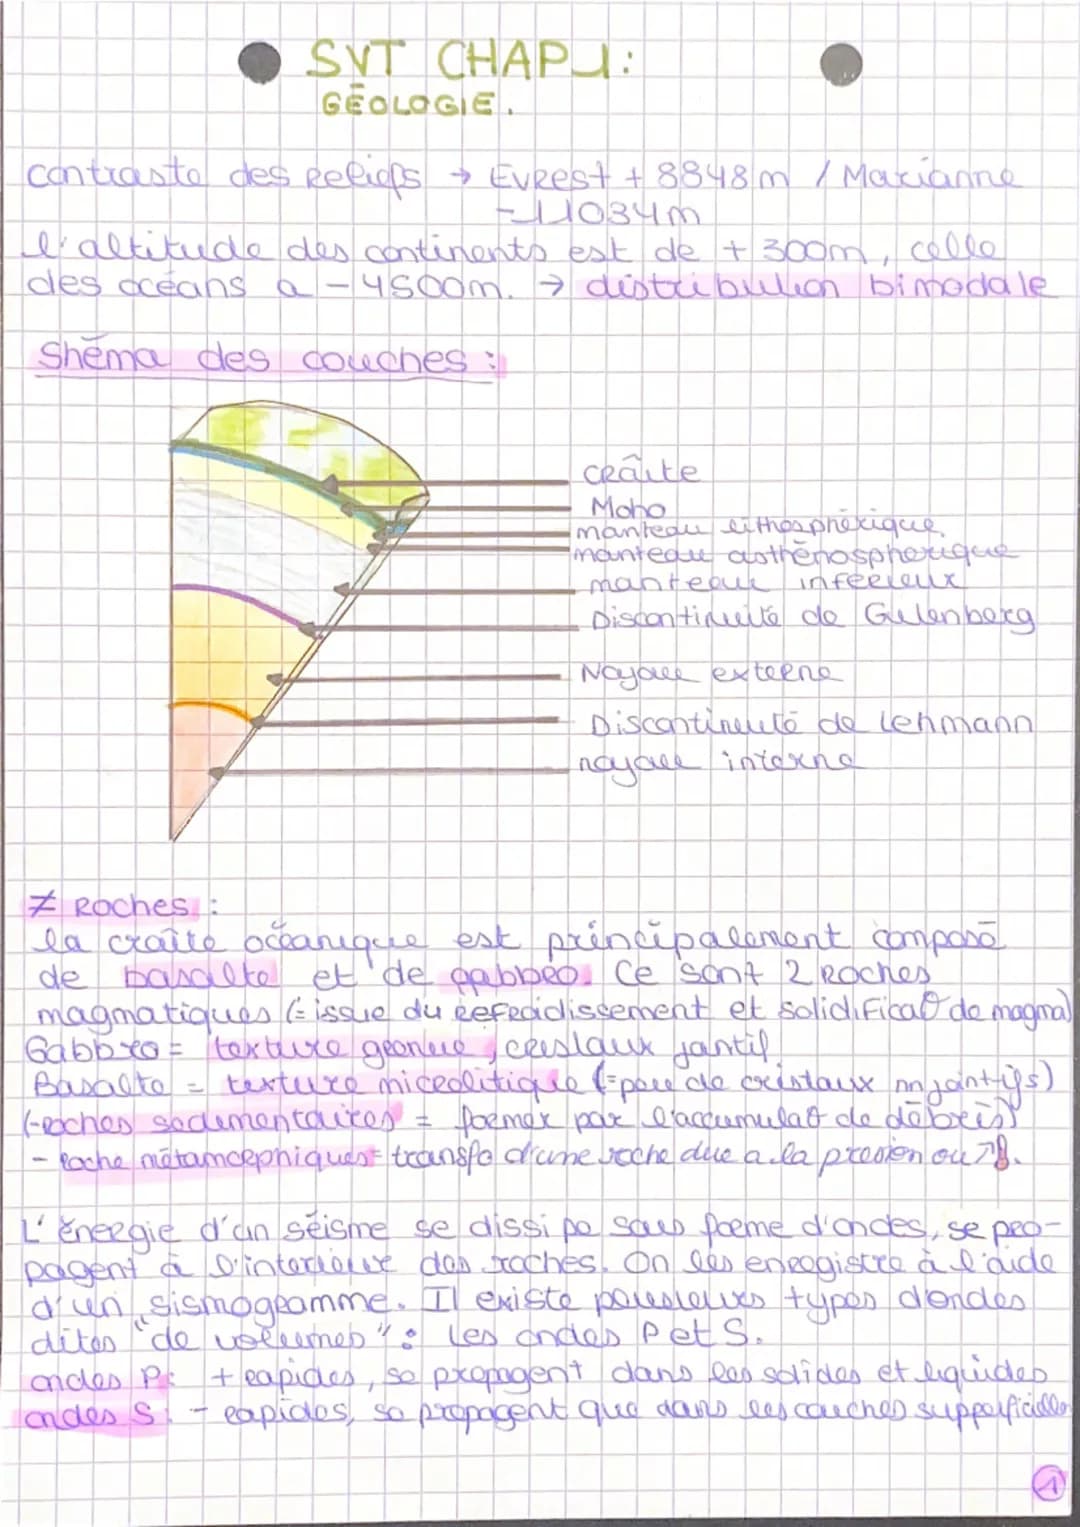 SVT CHAP 1:
GÉOLOGIE.
contraste des reliefs → Evrest + 8848m / Marianne
- 11034m
l'altitude des continents est de + 300m, celle
des océans a - 4500m. → distribution bimodale
Shéma des couches :
croûte
Moho
manteau lithosphérique
manteau asthénospherique
manteau inférieur
Discontinuité de Gutenberg
Noyau externe
Discontinuité de Lehmann
noyau interne
≠ Roches :
la croûte océanique est principalement composé
de basalte et de gabbro. Ce sont 2 Roches
magmatiques (= issue du refroidissement et solidificat° de magma)
Gabbro = texture grenue, cristaux jointif
Basalte = texture microlitique (= peu de cristaux nn jointifs)
(-roches sedimentaires = former par l'accumulat° de débris)
- Roche métamorphiques = transfo d'une roche due a la presion ou ↗
L'énergie d'un séisme se dissipe sous forme d'ondes, se pro-
pagent à l'interieur des roches. On les enregistre à l'aide
d'un sismogramme. Il existe plusieurs types d'ondes
dites "de volumes" : les ondes P et S.
ondes P : + rapides, se propagent dans les solides et liquides
ondes S : - rapides, se propagent que dans les couches supperficielles
1